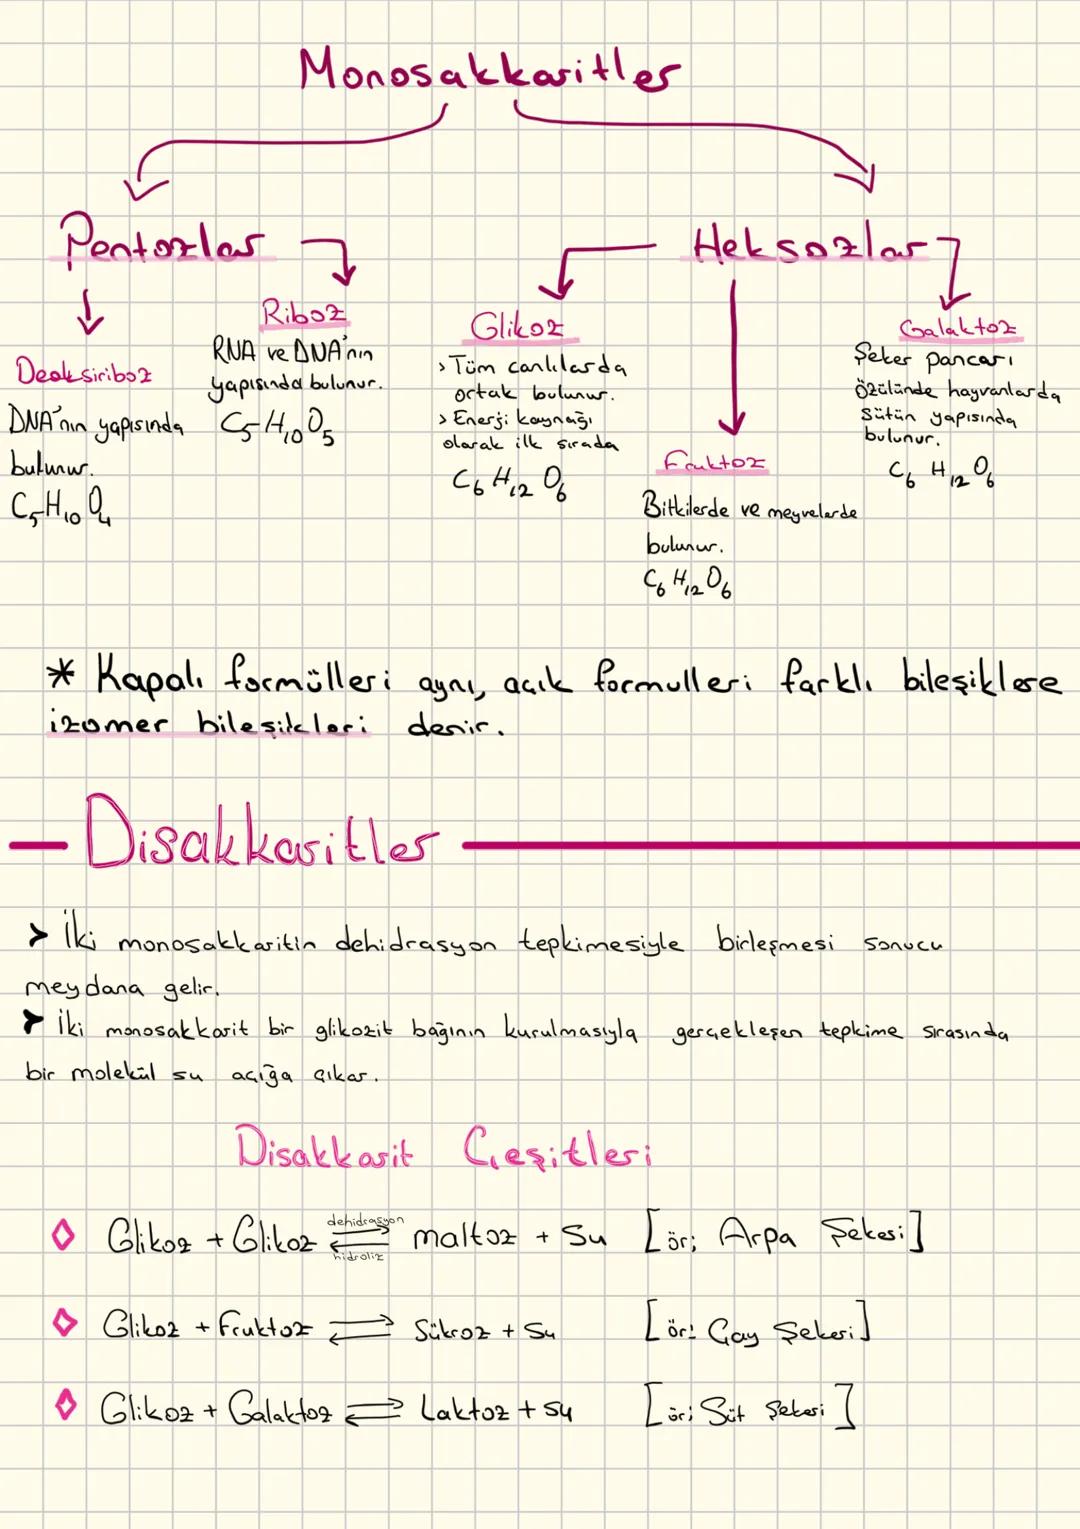 Monosakkaritler
Pentozlar
Heksozlar
Deoksiriboz
DNA'nın yapısında
bulunur.
C₅H₁₀O₄
Riboz
RNA ve DNA'nın
yapısında bulunur.
C₅H₁₀O₅
Glikoz
> Tüm canlılarda
ortak bulunur.
> Enerji kaynağı
olarak ilk sırada
C₆H₁₂O₆
Fruktoz
Bitkilerde ve meyvelerde
bulunur.
C₆H₁₂O₆
Galaktoz
Şeker pancarı
özülünde hayvanlarda
sütün yapısında
bulunur.
C₆H₁₂O₆
* Kapalı formülleri aynı, açık formulleri farklı bileşiklere
izomer bileşikleri denir.
Disakkaritler
➤ İki monosakkaritin dehidrasyon tepkimesiyle birleşmesi sonucu
meydana gelir.
➤ İki monosakkarit bir glikozit bağının kurulmasıyla gerçekleşen tepkime sırasında
bir molekül su açığa çıkar.
Disakkarit Çeşitleri
◇ Glikoz + Glikoz dehidrasyon ⇌ hidroliz maltoz + Su [ör; Arpa Şekeri]
◇ Glikoz + Fruktoz ⇌ Sükroz + Su [ör: Çay Şekeri]
◇ Glikoz + Galaktoz ⇌ Laktoz + su [ör; Süt Şekeri]